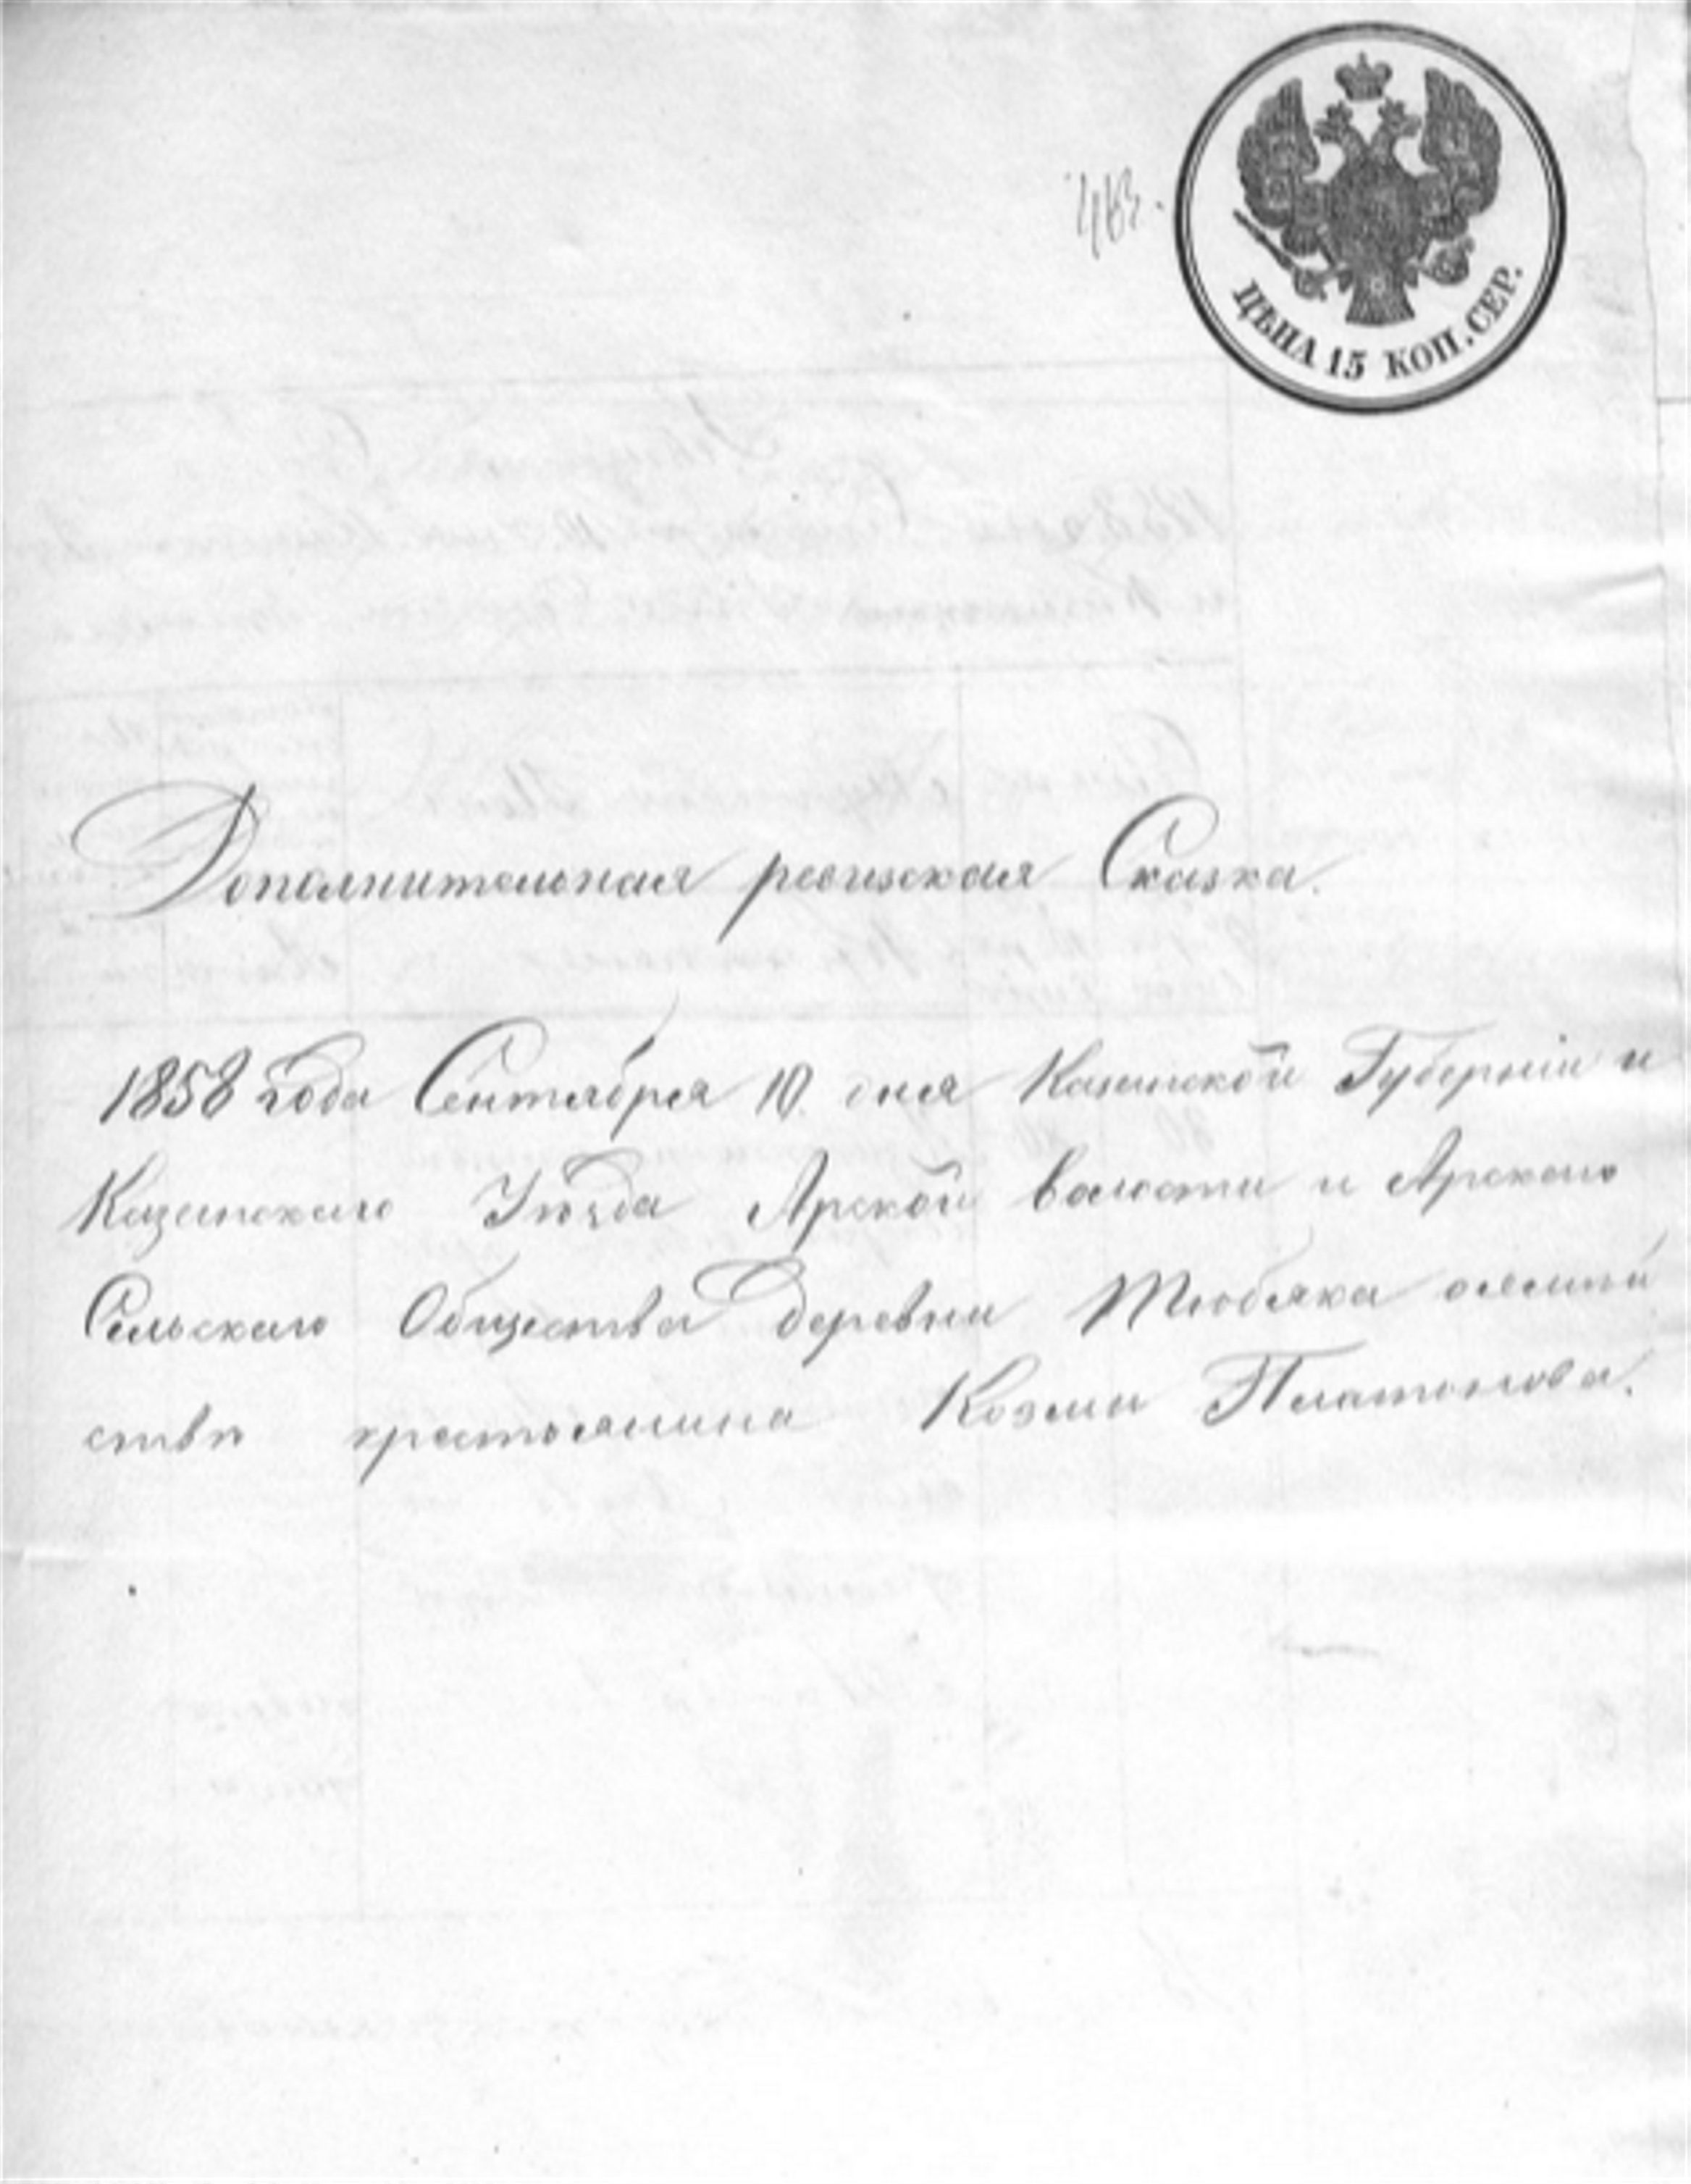 463.
ЦѢНА 15 КОП. СЕР.
Дополнительная ревизская Сказка.
1858 года Сентября 10 дня Казанской Губерніи и
Казанскаго Уѣзда Арской волости и Арскаго
Сельскаго Общества деревни Тюбяка о
ствѣ крестьянина Козми Платонова.